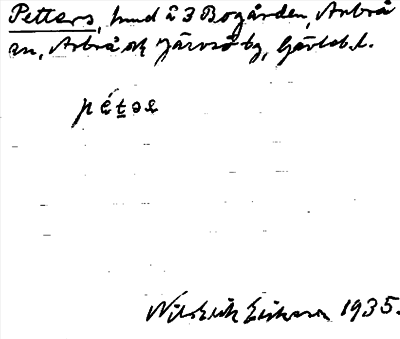 Petters, hmd å 3 Bogården, Arbrå
sn, Arbrå ok Järvsö tg, Gävleb. l.
pétəs
Nils Erik Eriksson 1935.